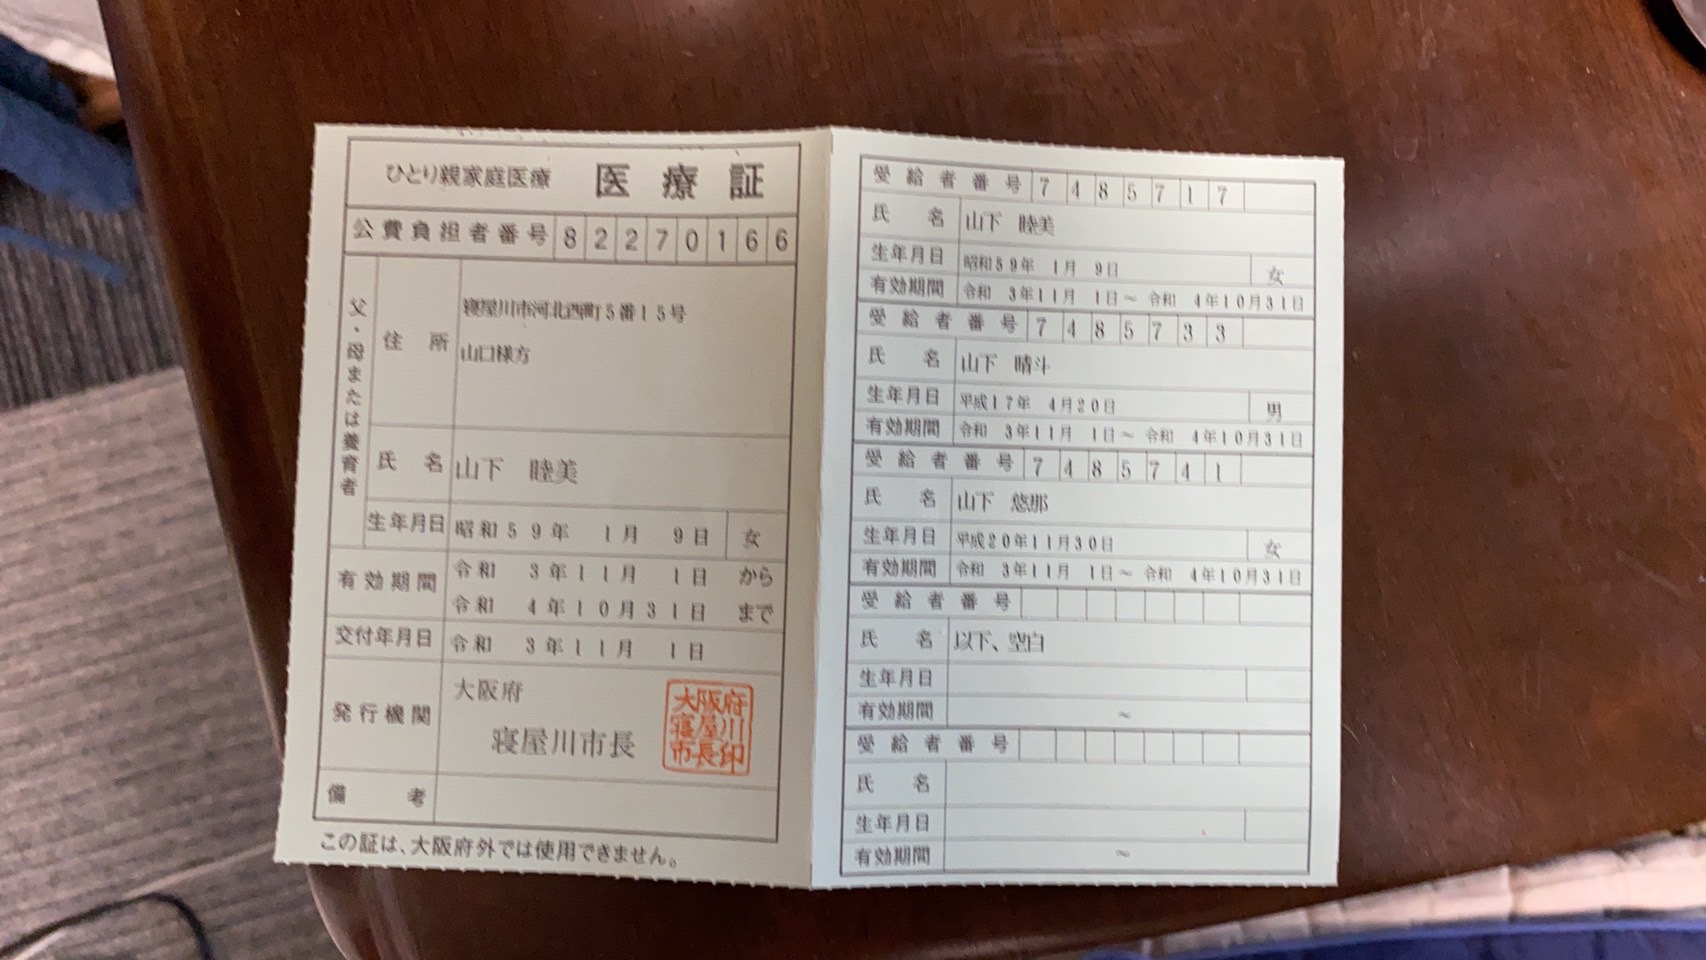 ひとり親家庭医療 医療証
公費負担者番号 82270166
父・母または養育者
住所 寝屋川市河北西町5番15号
山口様方
氏名 山下 睦美
生年月日 昭和59年 1月 9日 女
有効期間 令和 3年11月 1日 から
令和 4年10月31日 まで
交付年月日 令和 3年11月 1日
発行機関 大阪府
寝屋川市長
大阪府
寝屋川
市長印
備考
この証は、大阪府外では使用できません。
受給者番号 7485717
氏名 山下 睦美
生年月日 昭和59年 1月 9日 女
有効期間 令和 3年11月 1日～令和 4年10月31日
受給者番号 7485733
氏名 山下 晴斗
生年月日 平成17年 4月20日 男
有効期間 令和 3年11月 1日～令和 4年10月31日
受給者番号 7485741
氏名 山下 悠那
生年月日 平成20年11月30日 女
有効期間 令和 3年11月 1日～令和 4年10月31日
受給者番号
氏名 以下、空白
生年月日
有効期間 ～
受給者番号
氏名
生年月日
有効期間 ～